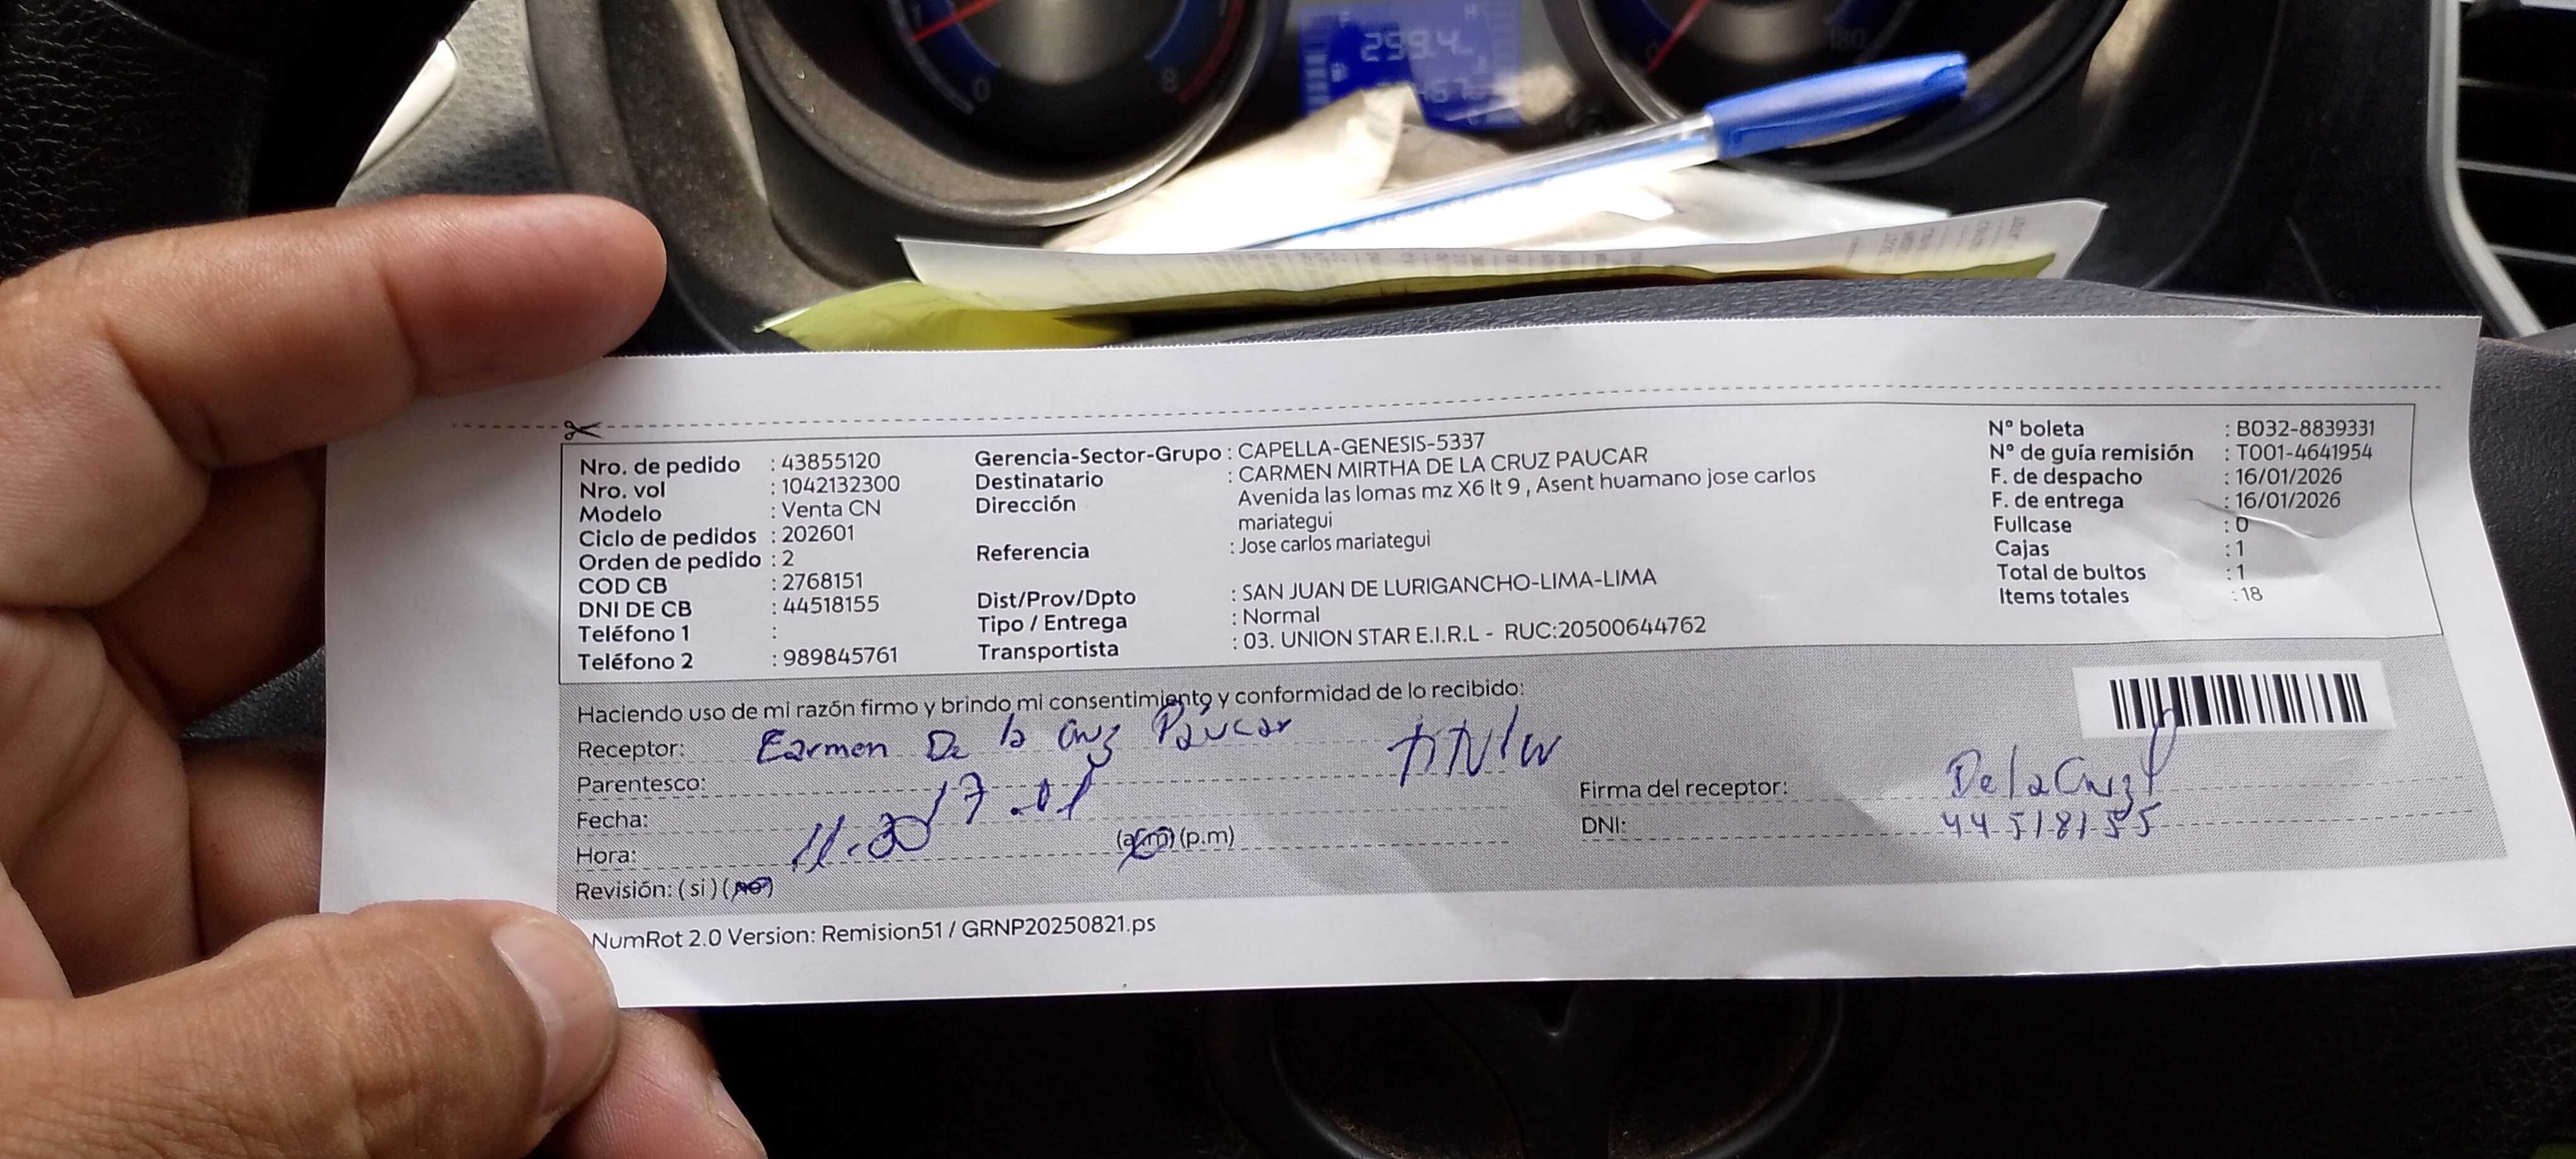 0
8
299.4
Nro. de pedido : 43855120
Nro. vol : 1042132300
Modelo : Venta CN
Ciclo de pedidos : 202601
Orden de pedido : 2
COD CB : 2768151
DNI DE CB : 44518155
Teléfono 1 :
Teléfono 2 : 989845761
Gerencia-Sector-Grupo : CAPELLA-GENESIS-5337
Destinatario : CARMEN MIRTHA DE LA CRUZ PAUCAR
Dirección Avenida las lomas mz X6 lt 9 , Asent huamano jose carlos
mariategui
Referencia : Jose carlos mariategui
Dist/Prov/Dpto : SAN JUAN DE LURIGANCHO-LIMA-LIMA
Tipo / Entrega : Normal
Transportista : 03. UNION STAR E.I.R.L - RUC:20500644762
N° boleta : B032-8839331
N° de guía remisión : T001-4641954
F. de despacho : 16/01/2026
F. de entrega : 16/01/2026
Fullcase : 0
Cajas : 1
Total de bultos : 1
Items totales : 18
Haciendo uso de mi razón firmo y brindo mi consentimiento y conformidad de lo recibido:
Receptor: Carmen De la Cruz Paucar
Parentesco:
Fecha: 17.01
Hora: 11.30 (a.m) (p.m)
Revisión: (si) (no)
Firma del receptor: De la Cruz
DNI: 44518155
NumRot 2.0 Version: Remision51 / GRNP20250821.ps